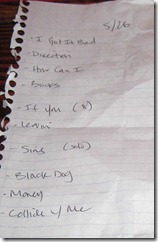 5/26
- I Got It Bad
- Direction
- How Can I
- Books
- If You (R)
- Leavin'
- Sins (solo)
- Black Dog
- Money
- Collide w/ Me